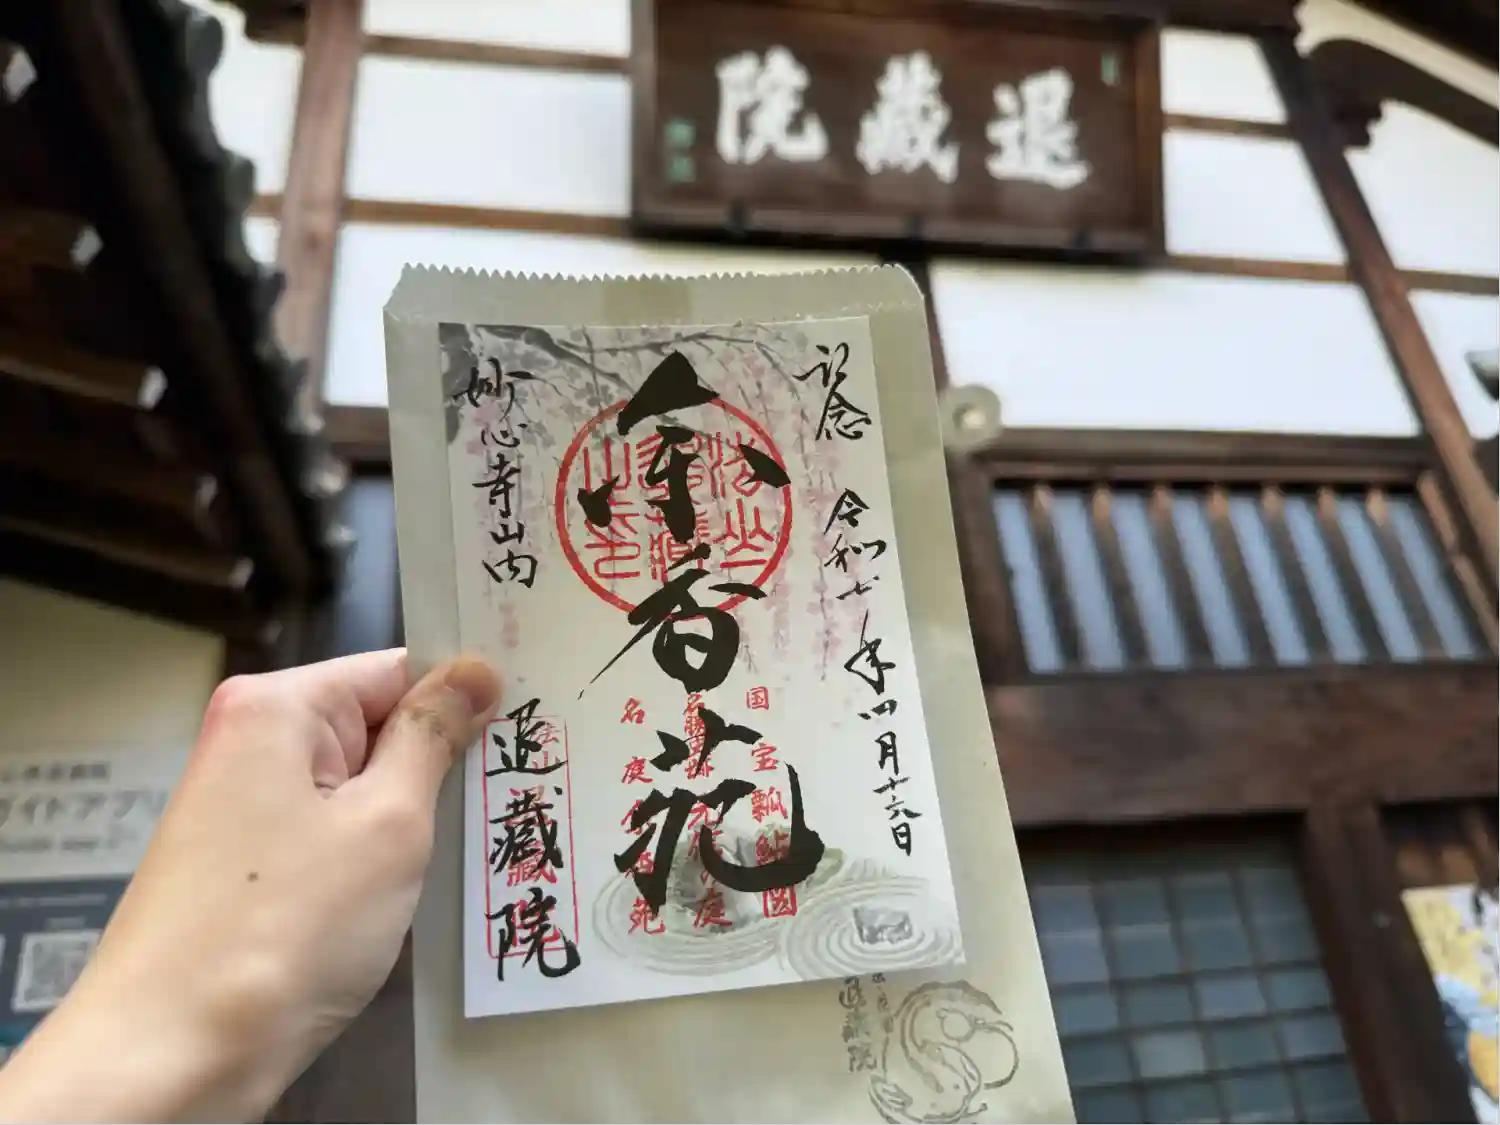 院蔵退
記念
令和七年四月十六日
余香苑
国宝瓢鮎図
元信の庭
名庭余香苑
妙心寺山内
退蔵院
退蔵院
ガイドアプリ